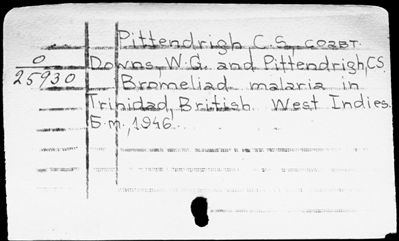 Pittendrigh, C.S. соавт.
O
25930
Downs, W.G. and Pittendrigh, C.S.
Bromeliad malaria in
Trinidad, British West Indies.
Б.м., 1946.